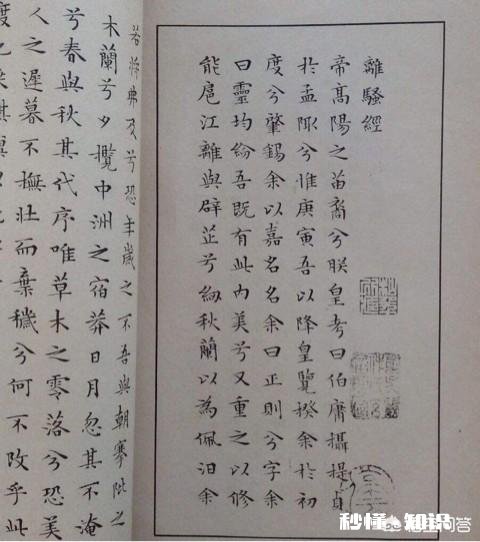 離騷經
帝高陽之苗裔兮朕皇考曰伯庸攝提貞
於孟陬兮惟庚寅吾以降皇覽揆余於初
度兮肇錫余以嘉名名余曰正則兮字余
曰靈均紛吾既有此內美兮又重之以修
能扈江離與辟芷兮紉秋蘭以為佩汨余
若將弗及兮恐年歲之不吾與朝搴阰之
木蘭兮夕攬中洲之宿莽日月忽其不淹
兮春與秋其代序唯草木之零落兮恐美
人之遲暮不撫壯而棄穢兮何不改乎此
秒懂·知识
问答